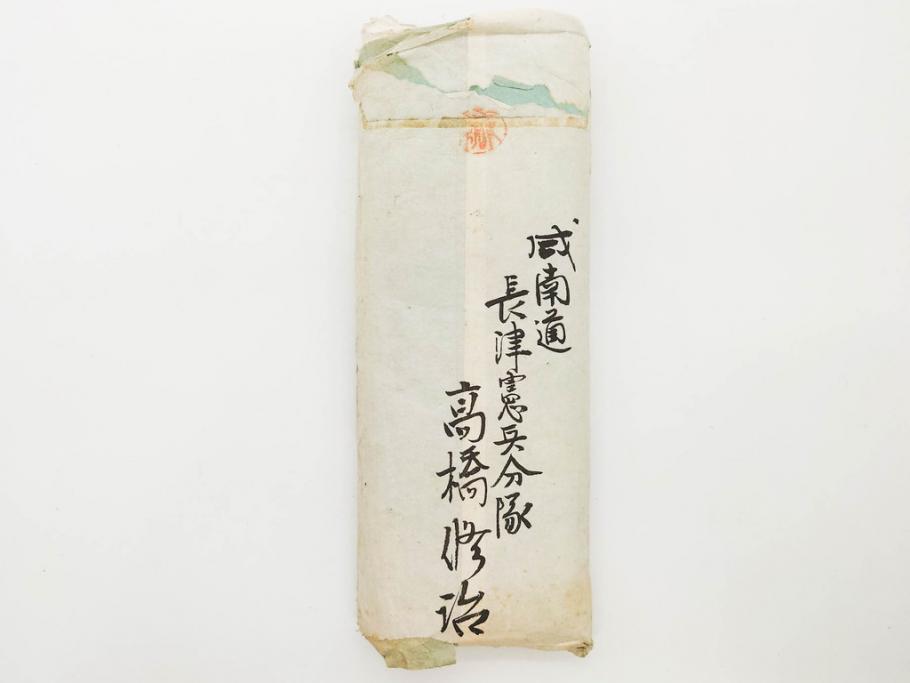 咸南道
長津憲兵分隊
高橋修治